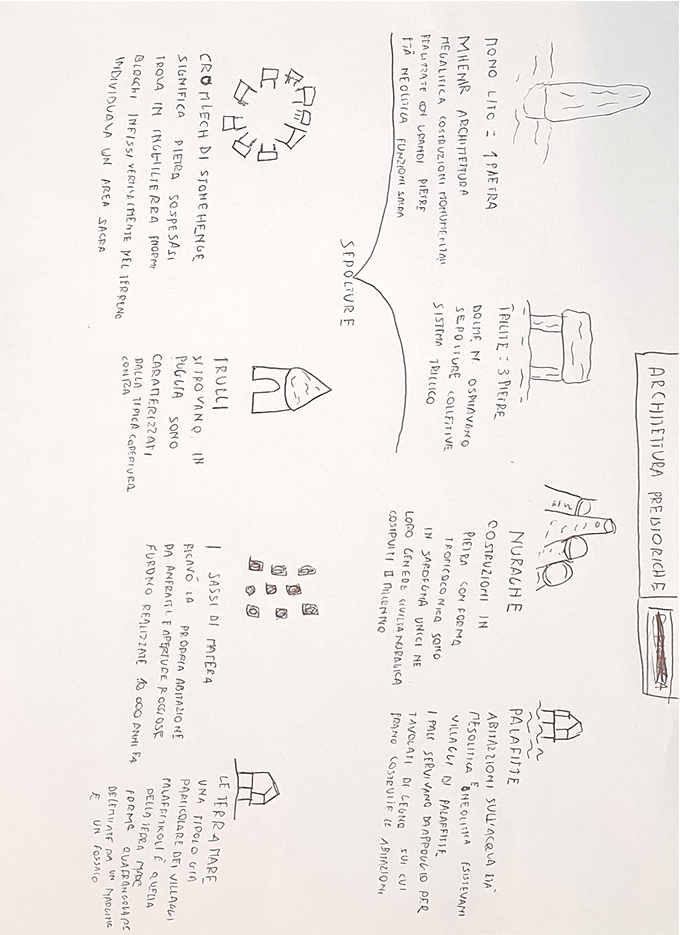 ARCHITETTURA PREISTORICHE
MONOLITO = 1 PAETRA
MHENIR ARCHITETTURA
MEGALITICA COSTRUZIONI MONUMENTALI
REALIZZATE CON GRANDI PIETRE
ETÀ NEOLITICA FUNZIONE SACRA
TRILITE = 3 PIETRE
DOLMEN OSPITAVANO
SEPOLTURE COLLETTIVE
SISTEMA TRILICO
SEPOLTURE
NURAGHE
COSTRUZIONI IN
PIETRA CON FORMA
TRONCOCONICA SONO
IN SARDEGNA UNICI NE
LORO GENERE CIVILTÀ NURAGICA
COSTRUITI II MILLENNIO
PALAFITTE
ABITAZZIONI SULL'ACQUA ETÀ
MESOLITICA E NEOLITICA ESISTEVANI
VILLAGGI DI PALAFITTE
I PALI SERVIVANO DA APPOGGIO PER
TAVOLATI DI LEGNO SUI CUI
ERANO COSTRUITE LE ABITAZIONI
CROMLECH DI STONEHENGE
SIGNIFICA PIETRA SOSPESASI
TROVA IN INGHILTERRA ENORMI
BLOCCHI INFISSI VERTICALMENTE NEL TERRENO
INDIVIDUAVA UN AREA SACRA
TRULLI
SI TROVANO IN
PUGLIA SONO
CARATTERIZZATI
DALLA TIPICA COPERTURA
CONICA
I SASSI DI MATERA
RICAVÒ LA PROPRIA ABITAZIONE
DA ANFRATTI E APERTURE ROCCIOSE
FURONO REALIZZATE 10 000 ANNI FA
LE TERRAMARE
UNA TIPOLOGIA
PARTICOLARE DEI VILLAGGI
PALAFITTICOLI È QUELLA
DELLA TERRA MARE
FORMA QUADRANGOLARE
DELEMITATE DA UN MARGINE
E UN FOSSATO